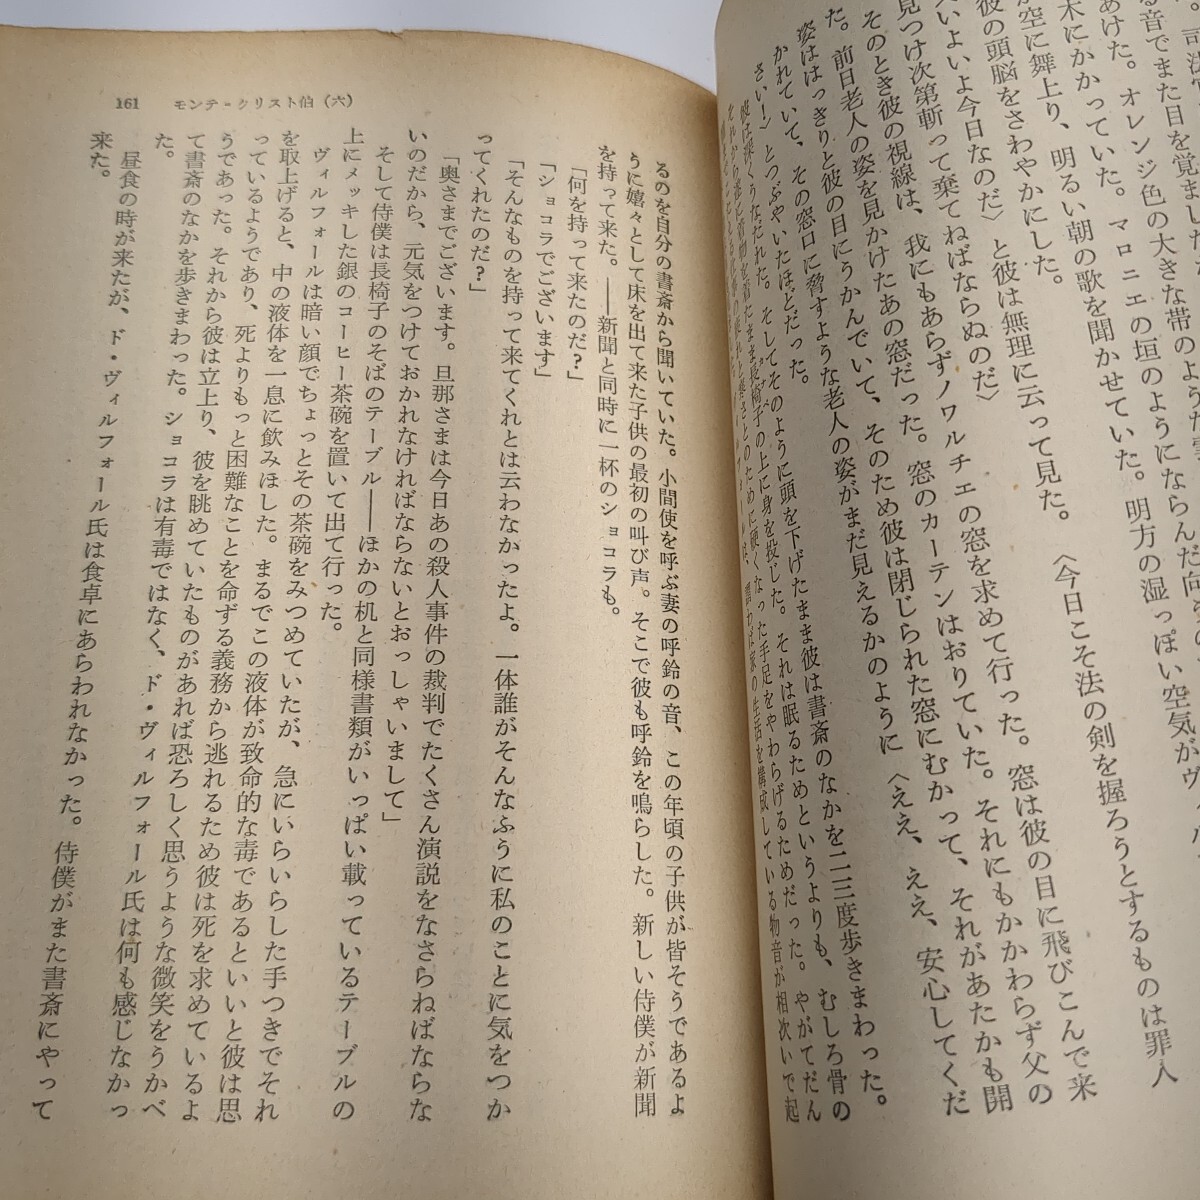 司法官
る音でまた目を覚ました
あけた。オレンジ色の大きな帯のような雲
木にかかっていた。マロニエの垣のようにならんだ向
空に舞上り、明るい朝の歌を聞かせていた。明方の湿っぽい空気がヴィル
彼の頭脳をさわやかにした。
いよいよ今日なのだ〉と彼は無理に云って見た。〈今日こそ法の剣を握ろうとするものは罪人
見つけ次第斬って棄てねばならぬのだ〉
そのとき彼の視線は、我にもあらずノワルチエの窓を求めて行った。窓は彼の目に飛びこんで来
た。前日老人の姿を見かけたあの窓だった。窓のカーテンはおりていた。それにもかかわらず父の
姿ははっきりと彼の目にうかんでいて、そのため彼は閉じられた窓にむかって、それがあたかも開
かれていて、その窓口に脅すような老人の姿がまだ見えるかのように〈ええ、ええ、安心してくだ
さい！〉とつぶやいたほどだった。
彼は深くうなだれた。そしてそのように頭を下げたまま彼は書斎のなかを二三度歩きまわった。
それから遂に着物を着たまま長椅子の上に身を投じた。それは眠るためというよりも、むしろ骨の
ために硬くなった手足をやわらげるためだった。やがてだん
謂わば家の生活を構成している物音が相次いで起
るのを自分の書斎から聞いていた。小間使を呼ぶ妻の呼鈴の音、この年頃の子供が皆そうであるよ
うに嬉々として床を出て来た子供の最初の叫び声。そこで彼も呼鈴を鳴らした。新しい侍僕が新聞
を持って来た。――新聞と同時に一杯のショコラも。
「何を持って来たのだ？」
「ショコラでございます」
「そんなものを持って来てくれとは云わなかったよ。一体誰がそんなふうに私のことに気をつか
ってくれたのだ？」
「奥さまでございます。旦那さまは今日あの殺人事件の裁判でたくさん演説をなさらねばならな
いのだから、元気をつけておかれなければならないとおっしゃいまして」
そして侍僕は長椅子のそばのテーブル――ほかの机と同様書類がいっぱい載っているテーブルの
上にメッキした銀のコーヒー茶碗を置いて出て行った。
ヴィルフォールは暗い顔でちょっとその茶碗をみつめていたが、急にいらいらした手つきでそれ
を取上げると、中の液体を一息に飲みほした。まるでこの液体が致命的な毒であるといいと彼は思
っているようであり、死よりもっと困難なことを命ずる義務から逃れるため彼は死を求めているよ
うであった。それから彼は立上り、彼を眺めていたものがあれば恐ろしく思うような微笑をうかべ
て書斎のなかを歩きまわった。ショコラは有毒ではなく、ド・ヴィルフォール氏は何も感じなかっ
た。
昼食の時が来たが、ド・ヴィルフォール氏は食卓にあらわれなかった。侍僕がまた書斎にやって
来た。
161 モンテ＝クリスト伯（六）